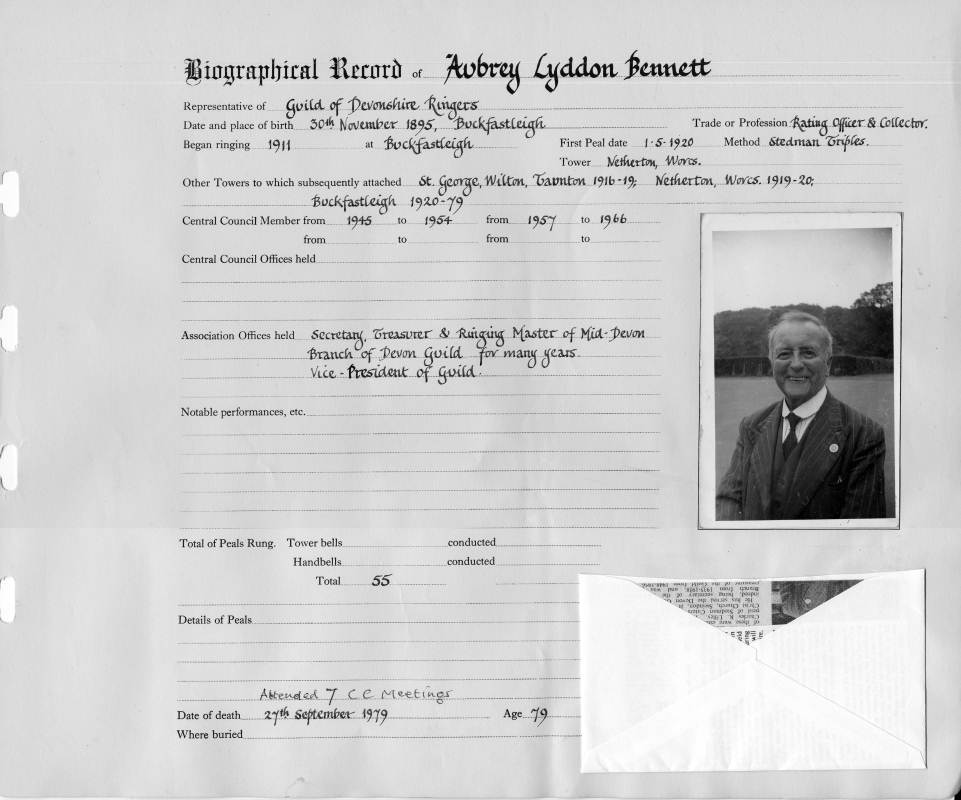 Biographical Record of Aubrey Lyddon Bennett
Representative of Guild of Devonshire Ringers
Date and place of birth 30th November 1895, Buckfastleigh Trade or Profession Rating Officer & Collector.
Began ringing 1911 at Buckfastleigh First Peal date 1.5.1920 Method Stedman Triples.
Tower Netherton, Worcs.
Other Towers to which subsequently attached St. George, Wilton, Taunton 1916-19; Netherton, Worcs. 1919-20;
Buckfastleigh 1920-79
Central Council Member from 1945 to 1954 from 1957 to 1966
from to from to
Central Council Offices held
Association Offices held Secretary, Treasurer & Ringing Master of Mid-Devon
Branch of Devon Guild for many years.
Vice-President of Guild.
Notable performances, etc.
Total of Peals Rung. Tower bells conducted
Handbells conducted
Total 55
Details of Peals
Attended 7 CC Meetings
Date of death 27th September 1979 Age 79
Where buried